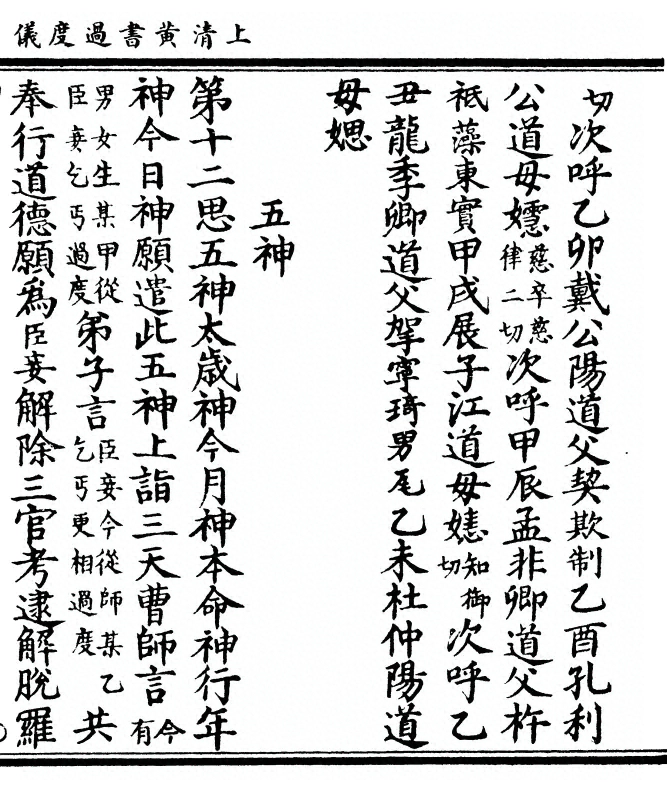 上清黃書過度儀
切次呼乙卯戴公陽道父契欺制乙酉孔利
公道母㜷慈卒慈律二切次呼甲辰孟非卿道父杵
祇藻東實甲戌展子江道毋嬉知御切次呼乙
丑龍季卿道父挐寧琦男尾乙未杜仲陽道
毋媤
五神
第十二思五神太歲神今月神本命神行年
神今日神願遣此五神上詣三天曹師言今有
男女生某甲從臣妾乞丐過度弟子言臣妾今從師某乙乞丐更相過度共
奉行道德願為臣妾解除三官考逮解脫羅